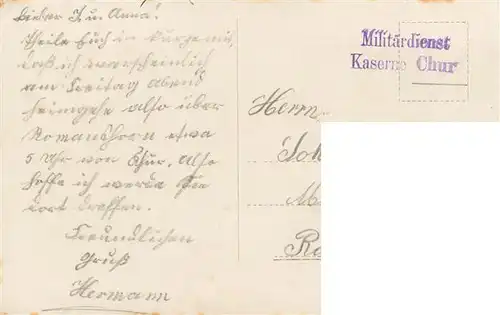 Lieber J. u. Anna!
Theile Euch in kürze mit,
daß ich warscheinlich
am Freitag Abend
heimgehe also über
Romanshorn etwa
5 Uhr von Chur. Also
hoffe ich werde Sie
dort treffen.
Freundlichen
Gruß
Hermann
Militärdienst
Kaserne Chur
Herrn